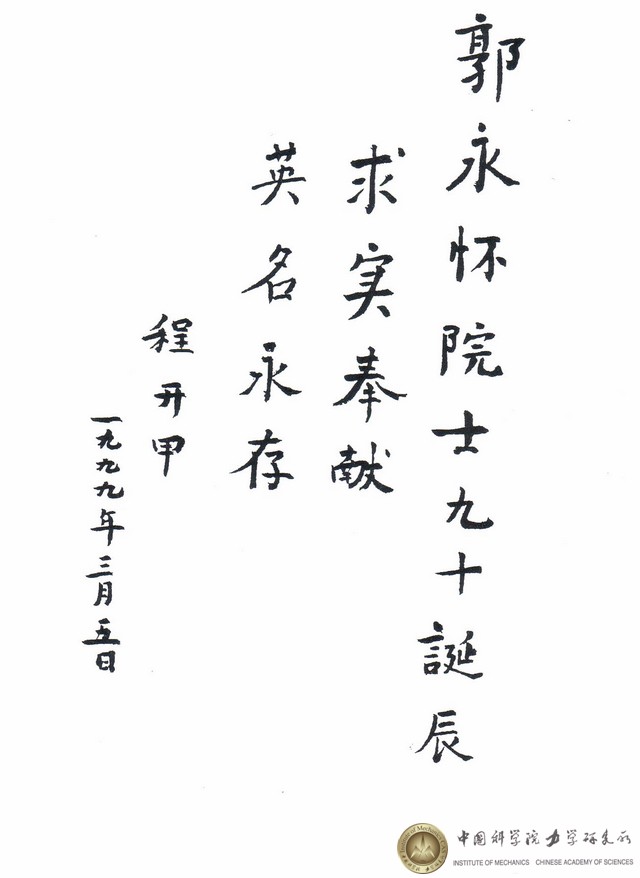 郭永怀院士九十誕辰
求实奉献
英名永存
程开甲
一九九九年三月五日
中国科学院力学研究所
INSTITUTE OF MECHANICS CHINESE ACADEMY OF SCIENCES